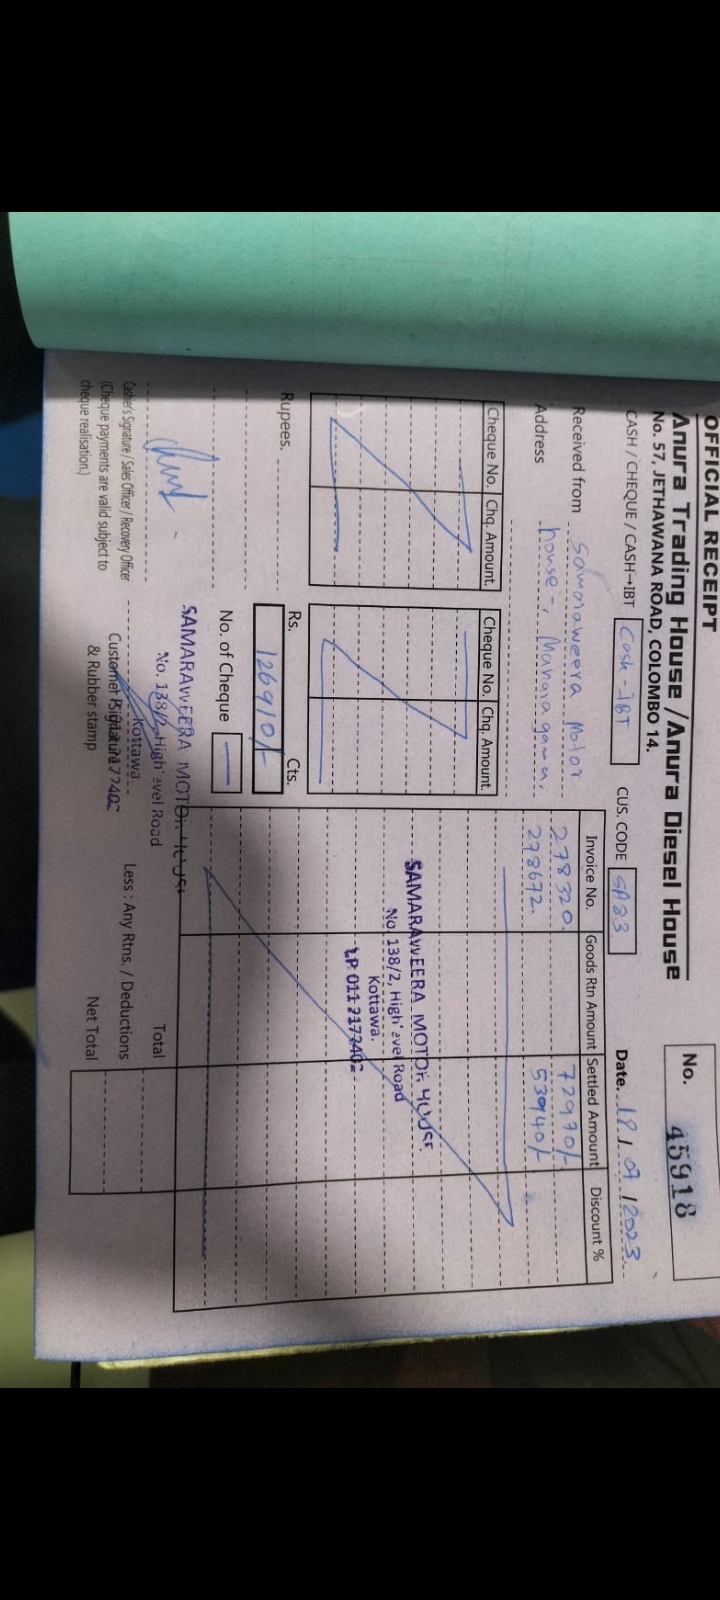 OFFICIAL RECEIPT
Anura Trading House / Anura Diesel House
No. 57, JETHAWANA ROAD, COLOMBO 14.
No. 45918
CASH / CHEQUE / CASH→IBT Cash - IBT
CUS. CODE SA23
Date. 18 / 07 / 2023
Received from Samaraweera Motor
house -, Maharagama.
Address
Cheque No. Chq. Amount Cheque No. Chq. Amount
Invoice No. Goods Rtn Amount Settled Amount Discount %
278320. 72970/-
278672. 53940/-
SAMARAWEERA MOTOR HOUSE
No. 138/2, High Level Road
Kottawa.
T.P. 011 2172402
Rupees.
Rs. 126910/- Cts.
No. of Cheque
SAMARAWEERA MOTOR HOUSE
No. 138/2, High Level Road
Kottawa
Cashier's Signature / Sales Officer / Recovery Officer
(Cheque payments are valid subject to
cheque realisation.)
Customer Signature
& Rubber stamp
Total
Less : Any Rtns. / Deductions
Net Total